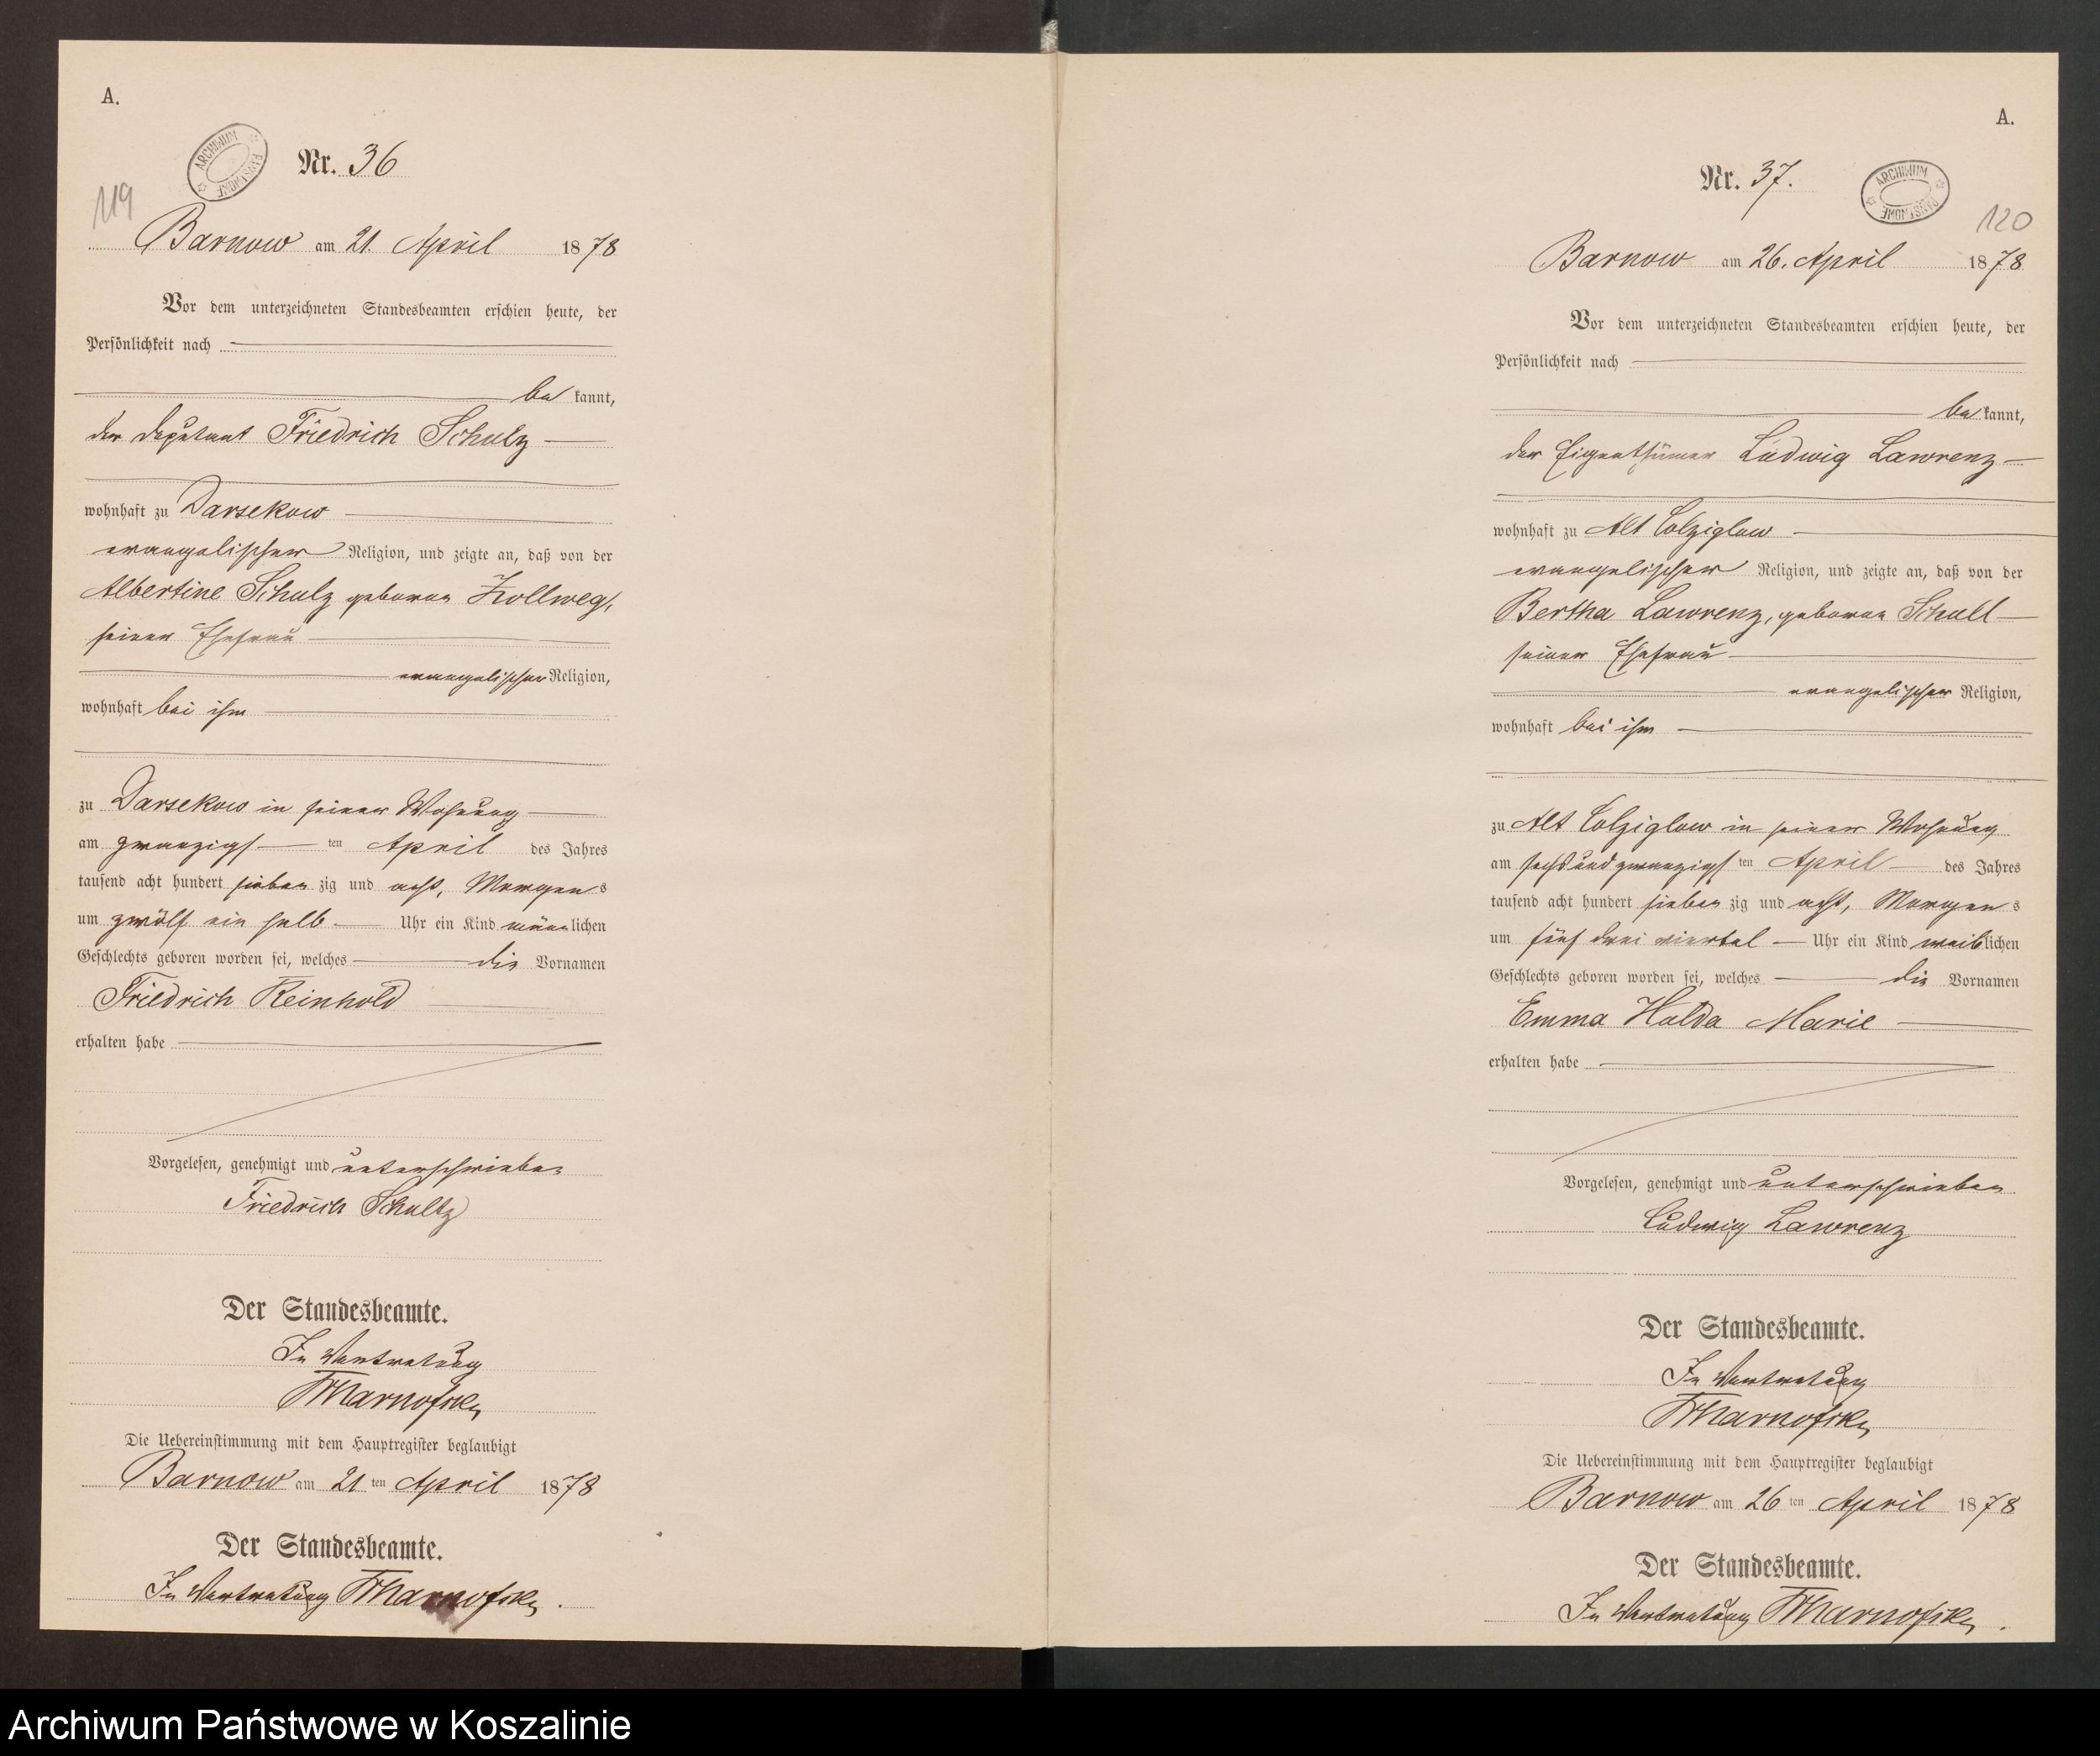 A.
ARCHIWUM PAŃSTWOWE
Nr. 36
119
Barnow am 21. April 1878
Vor dem unterzeichneten Standesbeamten erschien heute, der
Persönlichkeit nach
be kannt,
der Deputant Friedrich Schulz
wohnhaft zu Darsekow
evangelischer Religion, und zeigte an, daß von der
Albertine Schulz geborne Zollweg,
seiner Ehefrau
evangelischer Religion,
wohnhaft bei ihm
zu Darsekow in seiner Wohnung
am zwanzigs ten April des Jahres
tausend acht hundert sieben zig und acht, Morgens
um zwölf ein halb Uhr ein Kind männlichen
Geschlechts geboren worden sei, welches die Vornamen
Friedrich Reinhold
erhalten habe
Vorgelesen, genehmigt und unterschrieben
Friedrich Schultz
Der Standesbeamte.
In Vertretung
Die Uebereinstimmung mit dem Hauptregister beglaubigt
Barnow am 21 ten April 1878
Der Standesbeamte.
In Vertretung
A.
Nr. 37.
ARCHIWUM PAŃSTWOWE
120
Barnow am 26. April 1878
Vor dem unterzeichneten Standesbeamten erschien heute, der
Persönlichkeit nach
be kannt,
der Eigenthümer Ludwig Lawrenz
wohnhaft zu Alt Colziglow
evangelischer Religion, und zeigte an, daß von der
Bertha Lawrenz, geborne Schall
seiner Ehefrau
evangelischer Religion,
wohnhaft bei ihm
zu Alt Colziglow in seiner Wohnung
am sechsundzwanzigs ten April des Jahres
tausend acht hundert sieben zig und acht, Morgens
um fünf drei viertel Uhr ein Kind weiblichen
Geschlechts geboren worden sei, welches die Vornamen
Emma Hulda Marie
erhalten habe
Vorgelesen, genehmigt und unterschrieben
Ludwig Lawrenz
Der Standesbeamte.
In Vertretung
Die Uebereinstimmung mit dem Hauptregister beglaubigt
Barnow am 26 ten April 1878
Der Standesbeamte.
In Vertretung
Archiwum Państwowe w Koszalinie